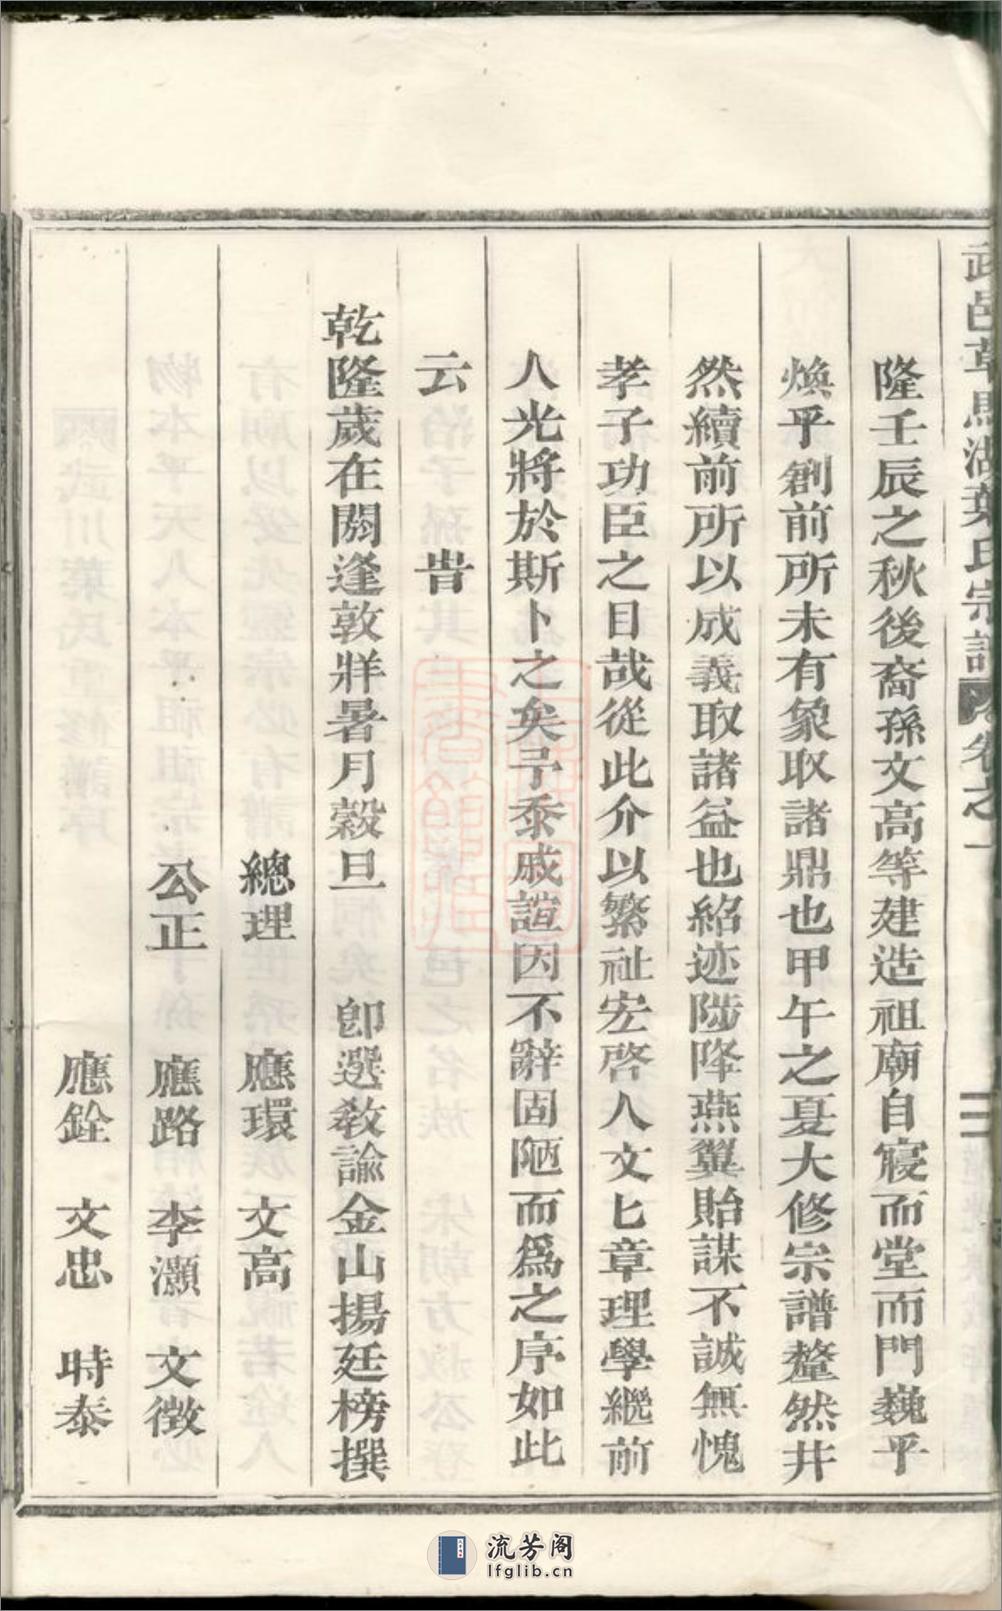 武邑草馬湖葉氏宗譜 卷之一 二
隆壬辰之秋後裔孫文高等建造祖廟自寢而堂而門巍乎
煥乎創前所未有象取諸鼎也甲午之夏大修宗譜釐然井
然續前所以成義取諸益也紹迹陟降燕翼貽謀不誠無愧
孝子功臣之目哉從此介以繁祉宏啓人文匕章理學繼前
人光將於斯卜之矣予忝戚誼因不辭固陋而爲之序如此
云 旹
乾隆歲在閼逢敦牂暑月穀旦 卽選教諭金山揚廷榜撰
總理 應環 文高
公正 應路 李灝 文徵
應銓 文忠 時泰
流芳阁
lfglib.cn